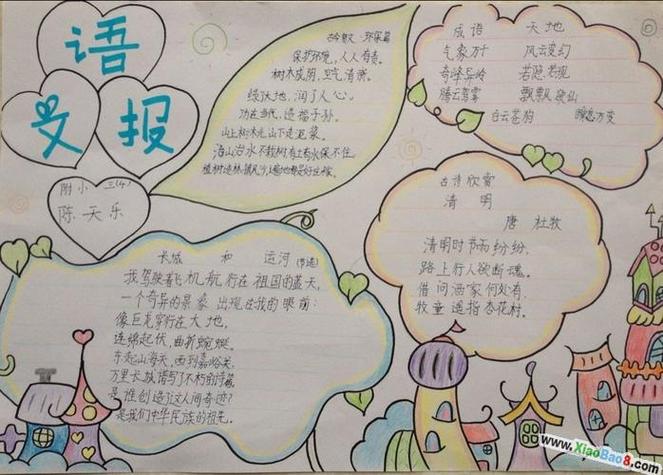 语
文 报
附小 三(4)
陈天乐
保护环境，人人有责。
树木成阴，空气清新。
绿化地，润了人心。
功在当代，造福子孙。
治山治水不栽树有土有水保不住。
成语 天地
气象万千 风云变幻
奇峰异岭 若隐若现
腾云驾雾 飘飘欲仙
白云苍狗 瞬息万变
古诗欣赏
清明
唐 杜牧
清明时节雨纷纷，
路上行人欲断魂。
借问酒家何处有，
牧童遥指杏花村。
长城 和 运河（节选）
我驾驶着飞机航行在祖国的蓝天，
一个奇异的景象出现在我的眼前：
像巨龙穿行在大地，
连绵起伏，曲折蜿蜒。
东起山海关，西到嘉峪关，
万里长城谱写了不朽的诗篇
是谁创造了这人间奇迹？
是我们中华民族的祖先。
www.XiaoBao8.com